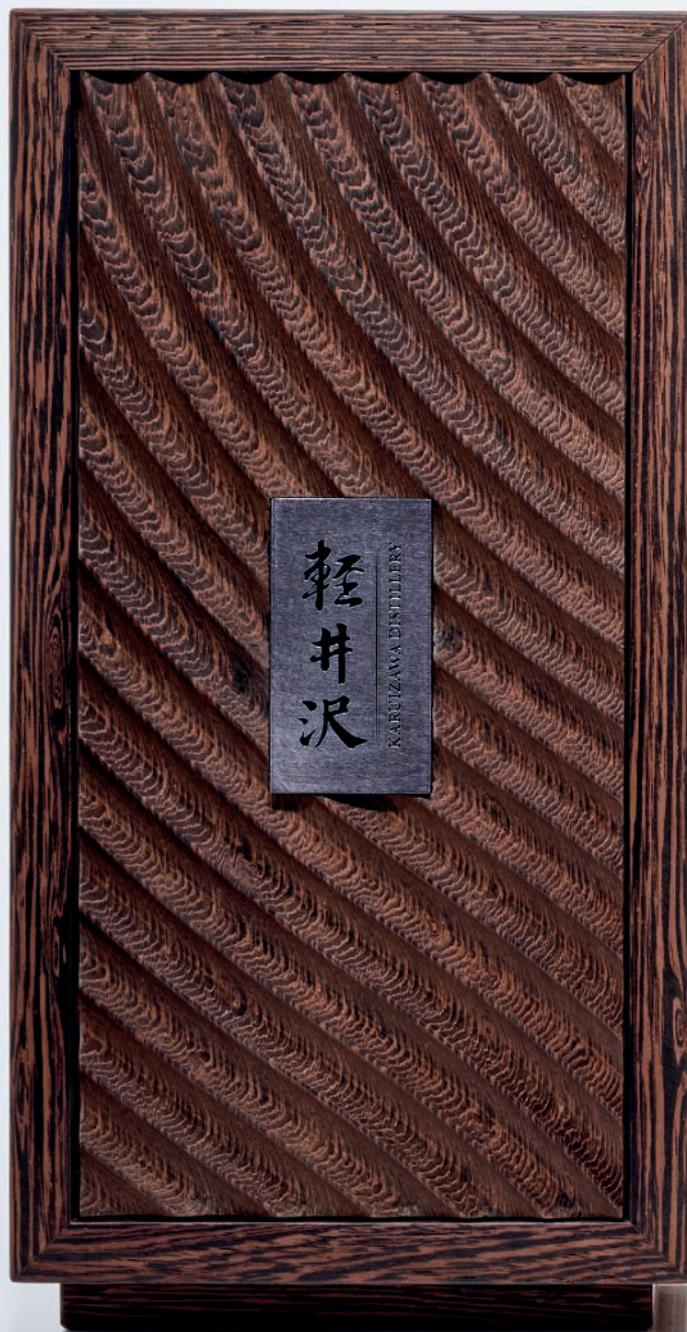 軽井沢
KARUIZAWA DISTILLERY